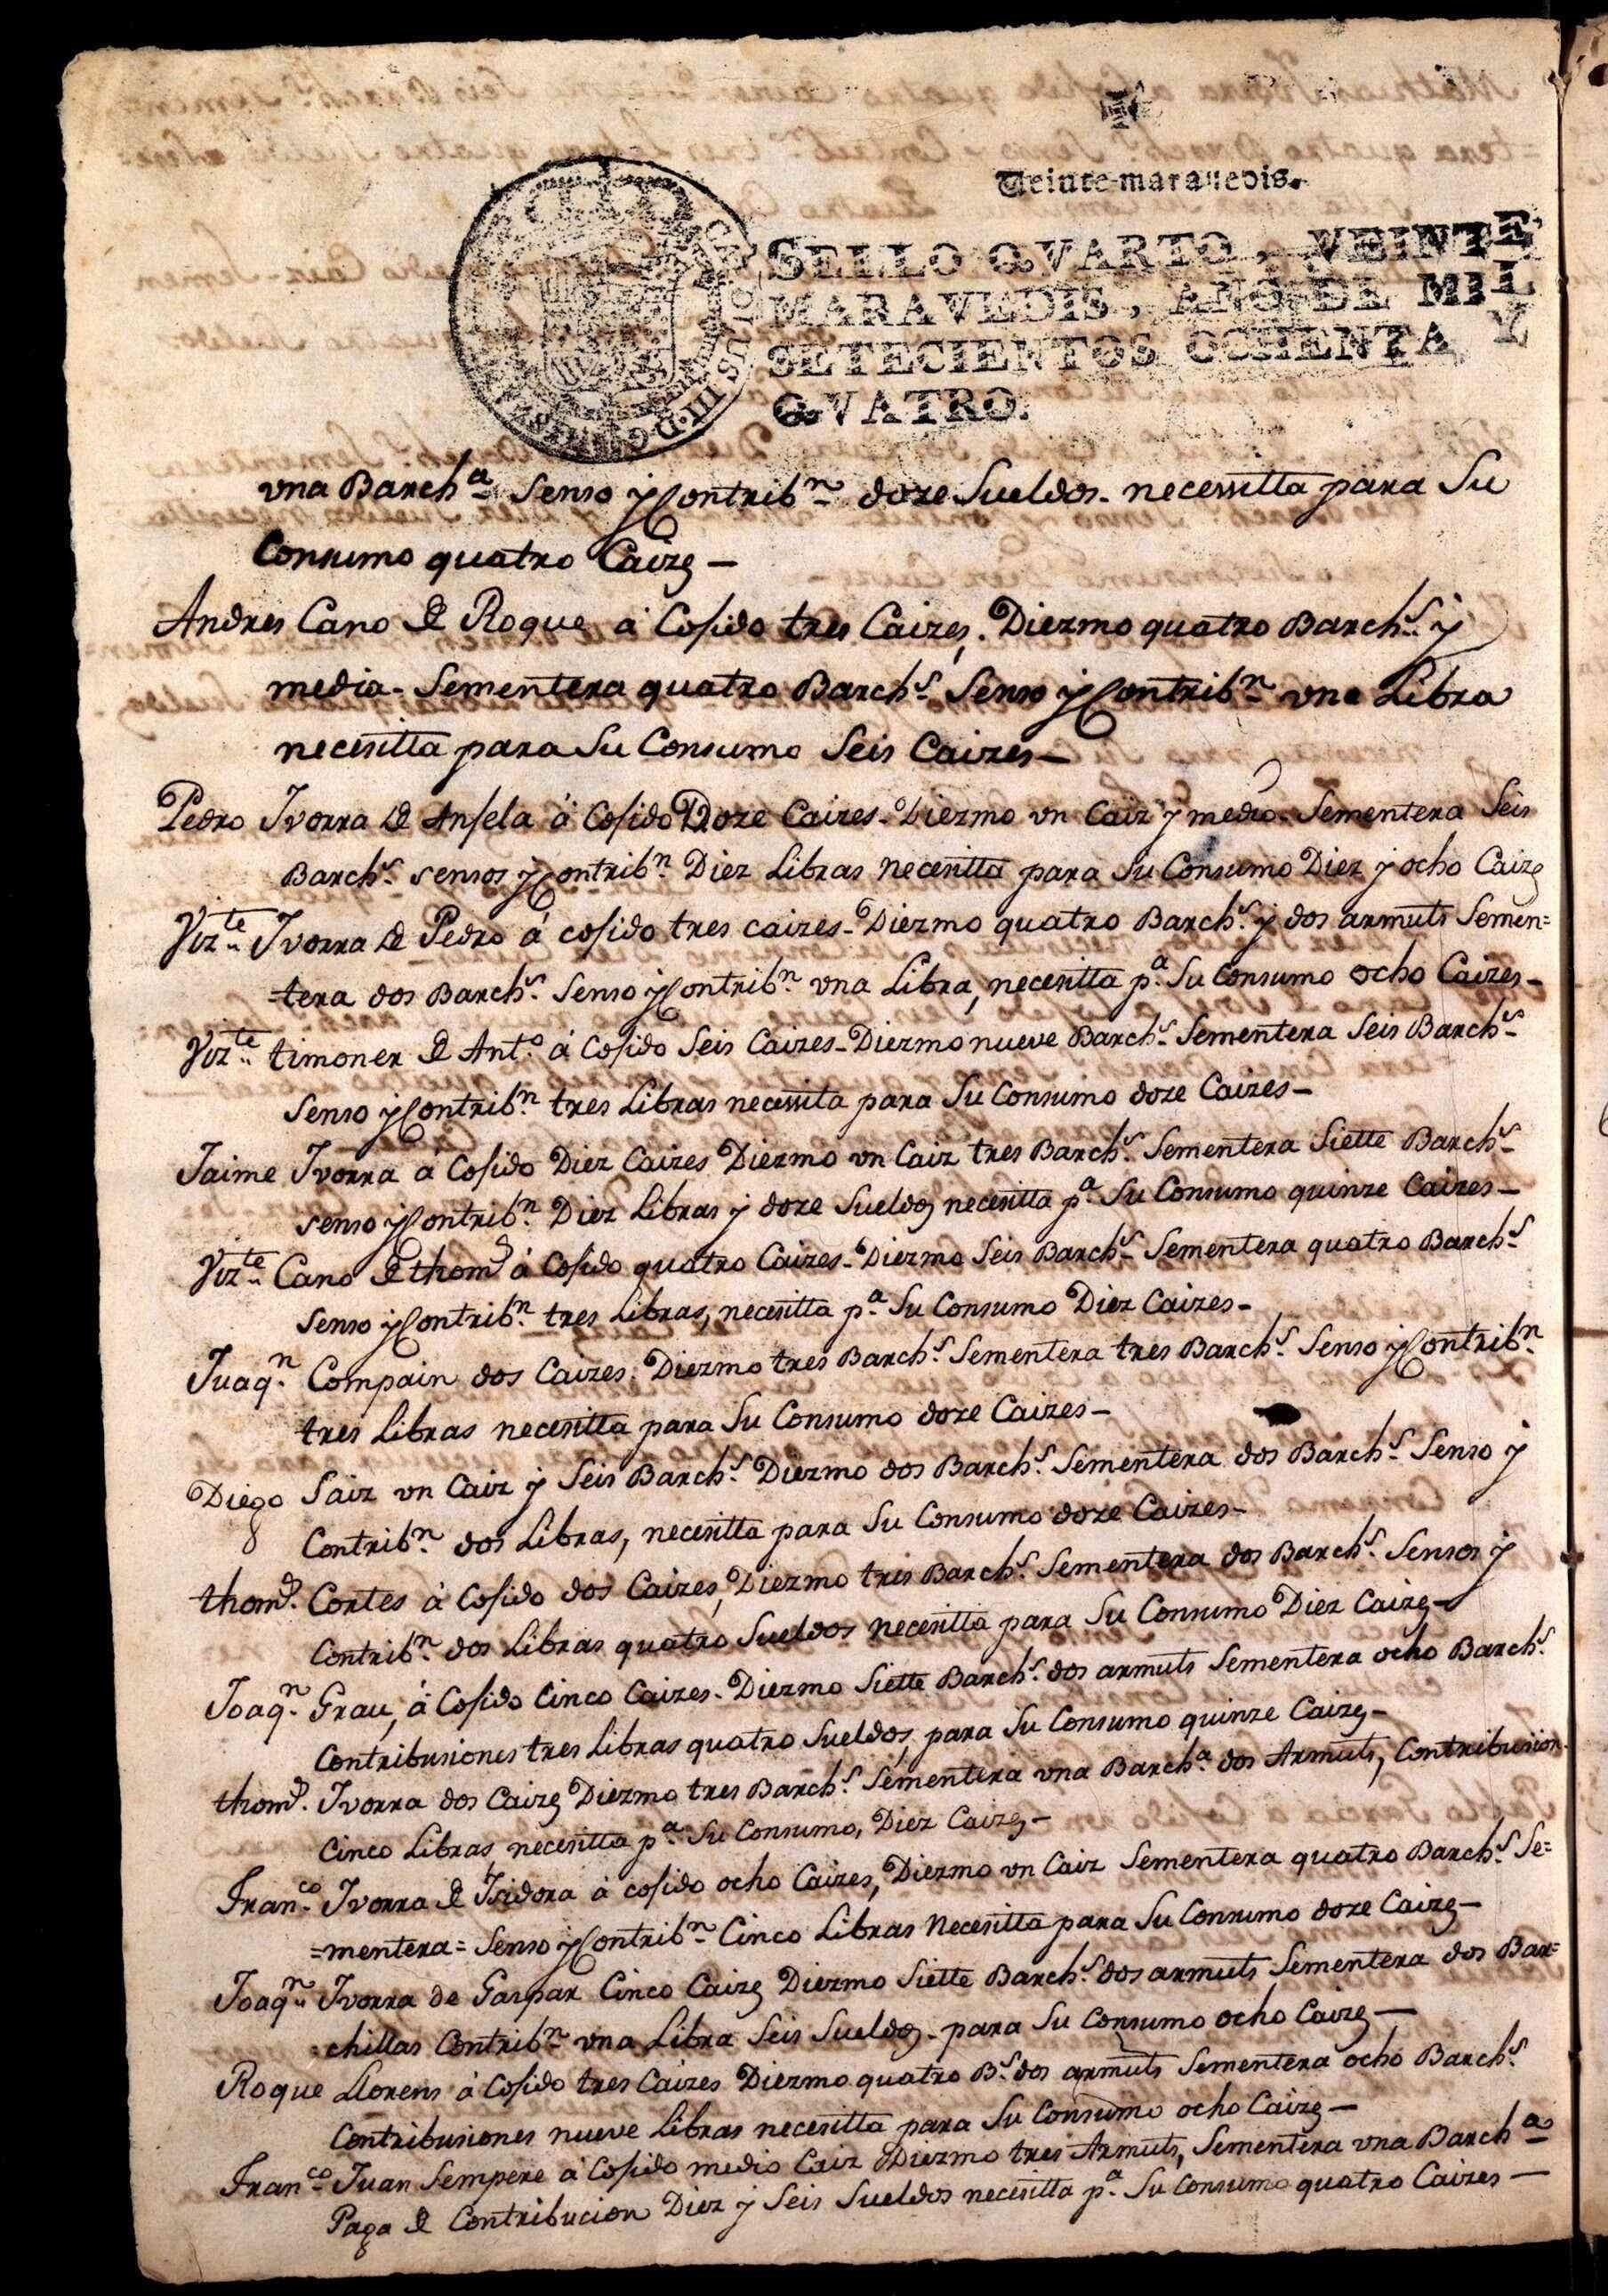 Veinte maravedis.
SELLO QVARTO, VEINTE
MARAVEDIS, AÑO DE MIL
SETECIENTOS OCHENTA Y
QVATRO.
CAROLUS III D G
vna Barchª Senso y Contribⁿ doze Sueldos necessitta para Su
Consumo quatro Caizs —
Andres Cano de Roque á Cosido tres Caizes, Diezmo quatro Barchˢ y
media - Sementera quatro Barchˢ Senso y Contribⁿ vna Libra
necesitta para Su Consumo Seis Caizes —
Pedro Ivorra de Ansela á Cosido Doze Caizes - Diezmo vn Caiz y medio - Sementera Seis
Barchˢ sensos y Contribⁿ Diez Libras necesitta para Su Consumo Diez y ocho Caizs
Vizᵗᵉ Ivorra de Pedro á cosido tres caizes - Diezmo quatro Barchˢ y dos armuts Semen=
=tera dos Barchˢ Senso y Contribⁿ vna Libra, necesitta pª Su Consumo ocho Caizes -
Vizᵗᵉ timoner de Antº á Cosido Seis Caizes - Diezmo nueve Barchˢ Sementera Seis Barchˢ
Senso y Contribⁿ tres Libras necessita para Su Consumo doze Caizes —
Jaime Ivorra á Cosido Diez Caizes Diezmo vn Caiz tres Barchˢ Sementera Siette Barchˢ
senso y Contribⁿ Diez Libras y doze Sueldos necesitta pª Su Consumo quinze Caizes —
Vizᵗᵉ Cano de thomˢ á Cosido quatro Caizes - Diezmo Seis Barchˢ Sementera quatro Barchˢ
Senso y Contribⁿ tres Libras, necesitta pª Su Consumo Diez Caizes -
Juaqⁿ Compain dos Caizes. Diezmo tres Barchˢ Sementera tres Barchˢ Senso y Contribⁿ
tres Libras necesitta para Su Consumo doze Caizes —
Diego Saiz vn Caiz y Seis Barchˢ Diezmo dos Barchˢ Sementera dos Barchˢ Senso y
Contribⁿ dos Libras, necesitta para Su Consumo doze Caizes -
thomˢ Cortes á Cosido dos Caizes, Diezmo tris Barchˢ Sementera dos Barchˢ Sensos y
Contribⁿ dos Libras quatro Sueldos necesitta para Su Consumo Diez Caizs —
Joaqⁿ Grau, á Cosido Cinco Caizes - Diezmo Siette Barchˢ dos armuts Sementera ocho Barchˢ
Contribusiones tres Libras quatro Sueldos, para Su Consumo quinze Caizs —
thomˢ Ivorra dos Caizs Diezmo tres Barchˢ Sementera vna Barchª dos Armuts, Contribusion
Cinco Libras necesitta pª Su Consumo, Diez Caizs —
Franᶜᵒ Ivorra de Isidora á cosido ocho Caizes, Diezmo vn Caiz Sementera quatro Barchˢ Se=
=mentera = Senso y Contribⁿ Cinco Libras Necesitta para Su Consumo doze Caizs —
Joaqⁿ Ivorra de Gaspar Cinco Caizs Diezmo Siette Barchˢ dos armuts Sementera dos Bar=
=chillas Contribⁿ vna Libra Seis Sueldos - para Su Consumo ocho Caizs —
Roque Llorens á Cosido tres Caizes Diezmo quatro Bˢ dos armuts Sementera ocho Barchˢ
Contribusiones nueve Libras necesitta para Su Consumo ocho Caizs —
Franᶜᵒ Juan Sempere á Cosido medio Caiz Diezmo tres Armuts, Sementera vna Barchª
Paga de Contribucion Diez y Seis Sueldos necesitta pª Su Consumo quatro Caizes —